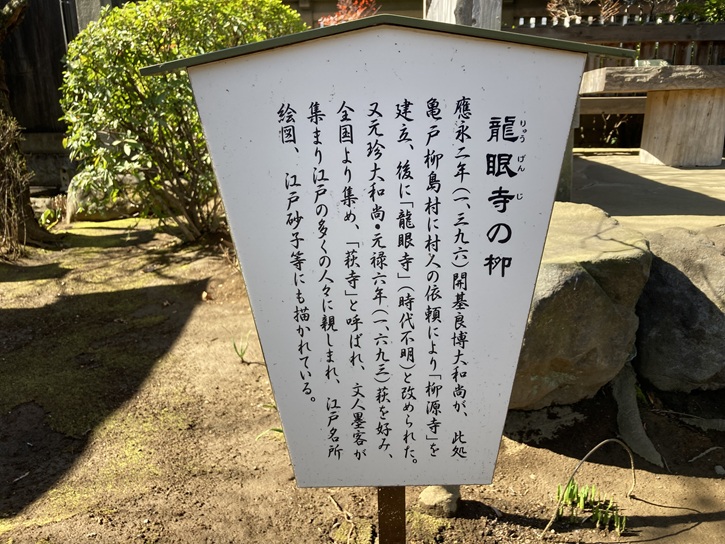 龍眼寺の栁
りゅう げん じ
應永二年(一、三九六)開基良博大和尚が、此処
亀戸柳島村に村人の依頼により「柳源寺」を
建立、後に「龍眼寺」(時代不明)と改められた。
又元珍大和尚・元禄六年(一、六九三)萩を好み、
全国より集め、「萩寺」と呼ばれ、文人墨客が
集まり江戸の多くの人々に親しまれ、江戸名所
絵図、江戸砂子等にも描かれている。